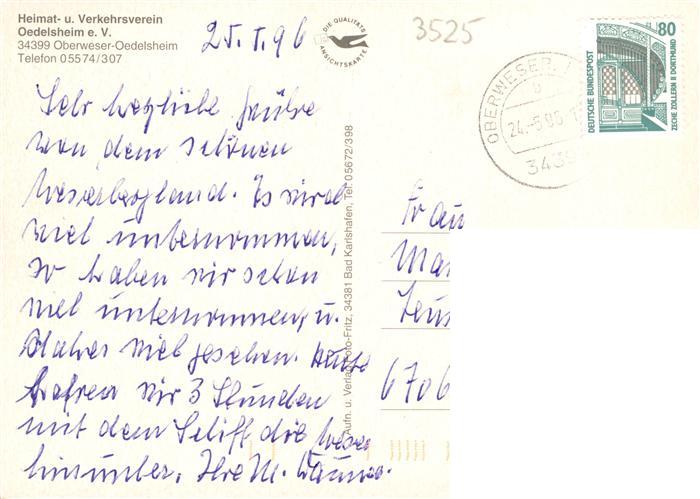 Heimat- u. Verkehrsverein
Oedelsheim e. V.
34399 Oberweser-Oedelsheim
Telefon 05574/307
DIE QUALITÄTS
ANSICHTSKARTE
3525
80
DEUTSCHE BUNDESPOST
ZECHE ZOLLERN II DORTMUND
OBERWESER
24.-5.96
3439
Sehr herzliche Grüße
von dem schönen
Weserbergland. Es wird
viel unternommen,
so haben wir schon
viel unternommen, u.
daher viel gesehen. Heute
trafen wir 3 Stunden
mit dem Schiff die Weser
hinunter. Ihre M.
Aufn. u. Verlag Foto-Fritz, 34381 Bad Karlshafen, Tel. 05672/398
Frau
Mar
6706